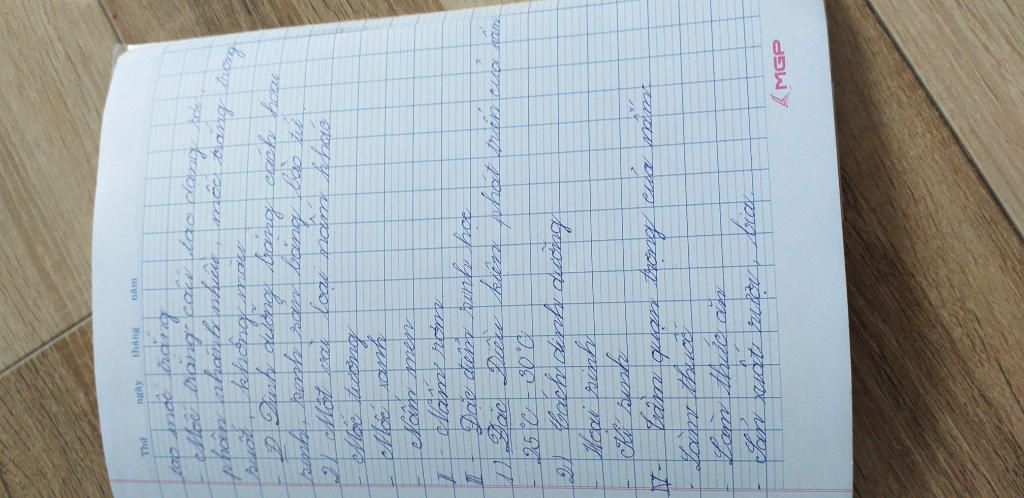 Thứ ngày tháng năm
cao mốc trắng
- Mốc trắng cấu tạo dạng sợi,
phân nhánh nhiều, mốc trắng trong
suốt, không màu
- Dinh dưỡng bằng cách hoại
sinh, sinh sản bằng bào tử
2) Một vài loại nấm khác
- Mốc tương
- Mốc xanh
- Nấm men
II - Nấm rơm
III - Đặc điểm sinh học
1) Điều kiện phát triển của nấm
- 25°C - 30°C
2) Cách dinh dưỡng
- Hoại sinh
- Kí sinh
IV - Tầm quan trọng của nấm
- Làm thuốc
- Làm thức ăn
- Sản xuất rượu, bia
MGP